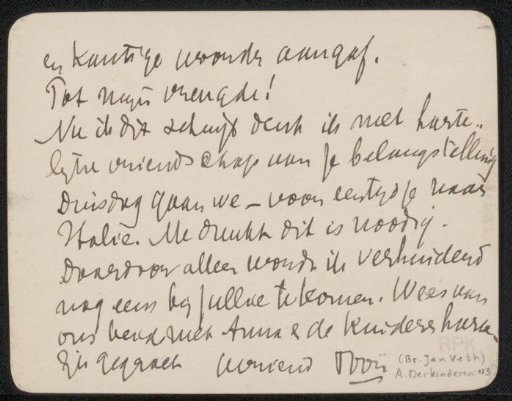 en kantige woorden aangaf.
Tot mijn vreugde!
Nu ik dit schrijf denk ik met harte-
lijke vriendschap aan je belangstelling
Dinsdag gaan we – voor een tijdje naar
Italië. Me dunkt dit is noodig.
Daardoor alleen word ik verhinderd
nog eens bij jullie te komen. Wees van
ons beiden met Anna & de kinders harte-
lijk gegroet vriend
(Br. Jan Veth)
A. Derkinderen
RPK